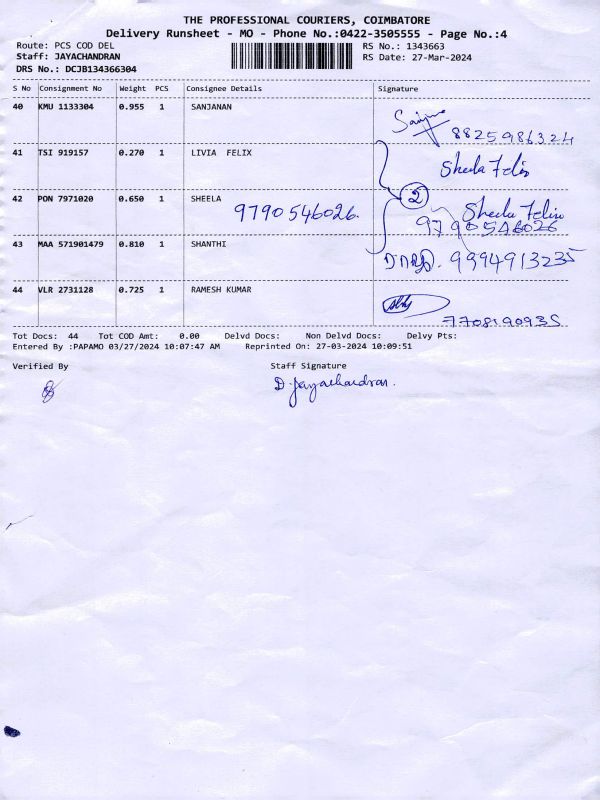 THE PROFESSIONAL COURIERS, COIMBATORE
Delivery Runsheet - MO - Phone No.:0422-3505555 - Page No.:4
Route: PCS COD DEL
RS No.: 1343663
Staff: JAYACHANDRAN
RS Date: 27-Mar-2024
DRS No.: DCJB134366304
S No Consignment No Weight PCS Consignee Details Signature
40 KMU 1133304 0.955 1 SANJANAN
8825986324
41 TSI 919157 0.270 1 LIVIA FELIX
Sheela Felix
42 PON 7971020 0.650 1 SHEELA
9790546026. 2 Sheela Felix
9790546026
43 MAA 571901479 0.810 1 SHANTHI
9994913235
44 VLR 2731128 0.725 1 RAMESH KUMAR
7708190935
Tot Docs: 44 Tot COD Amt: 0.00 Delvd Docs: Non Delvd Docs: Delvy Pts:
Entered By :PAPAMO 03/27/2024 10:07:47 AM Reprinted On: 27-03-2024 10:09:51
Verified By Staff Signature
D. Jayachandran.